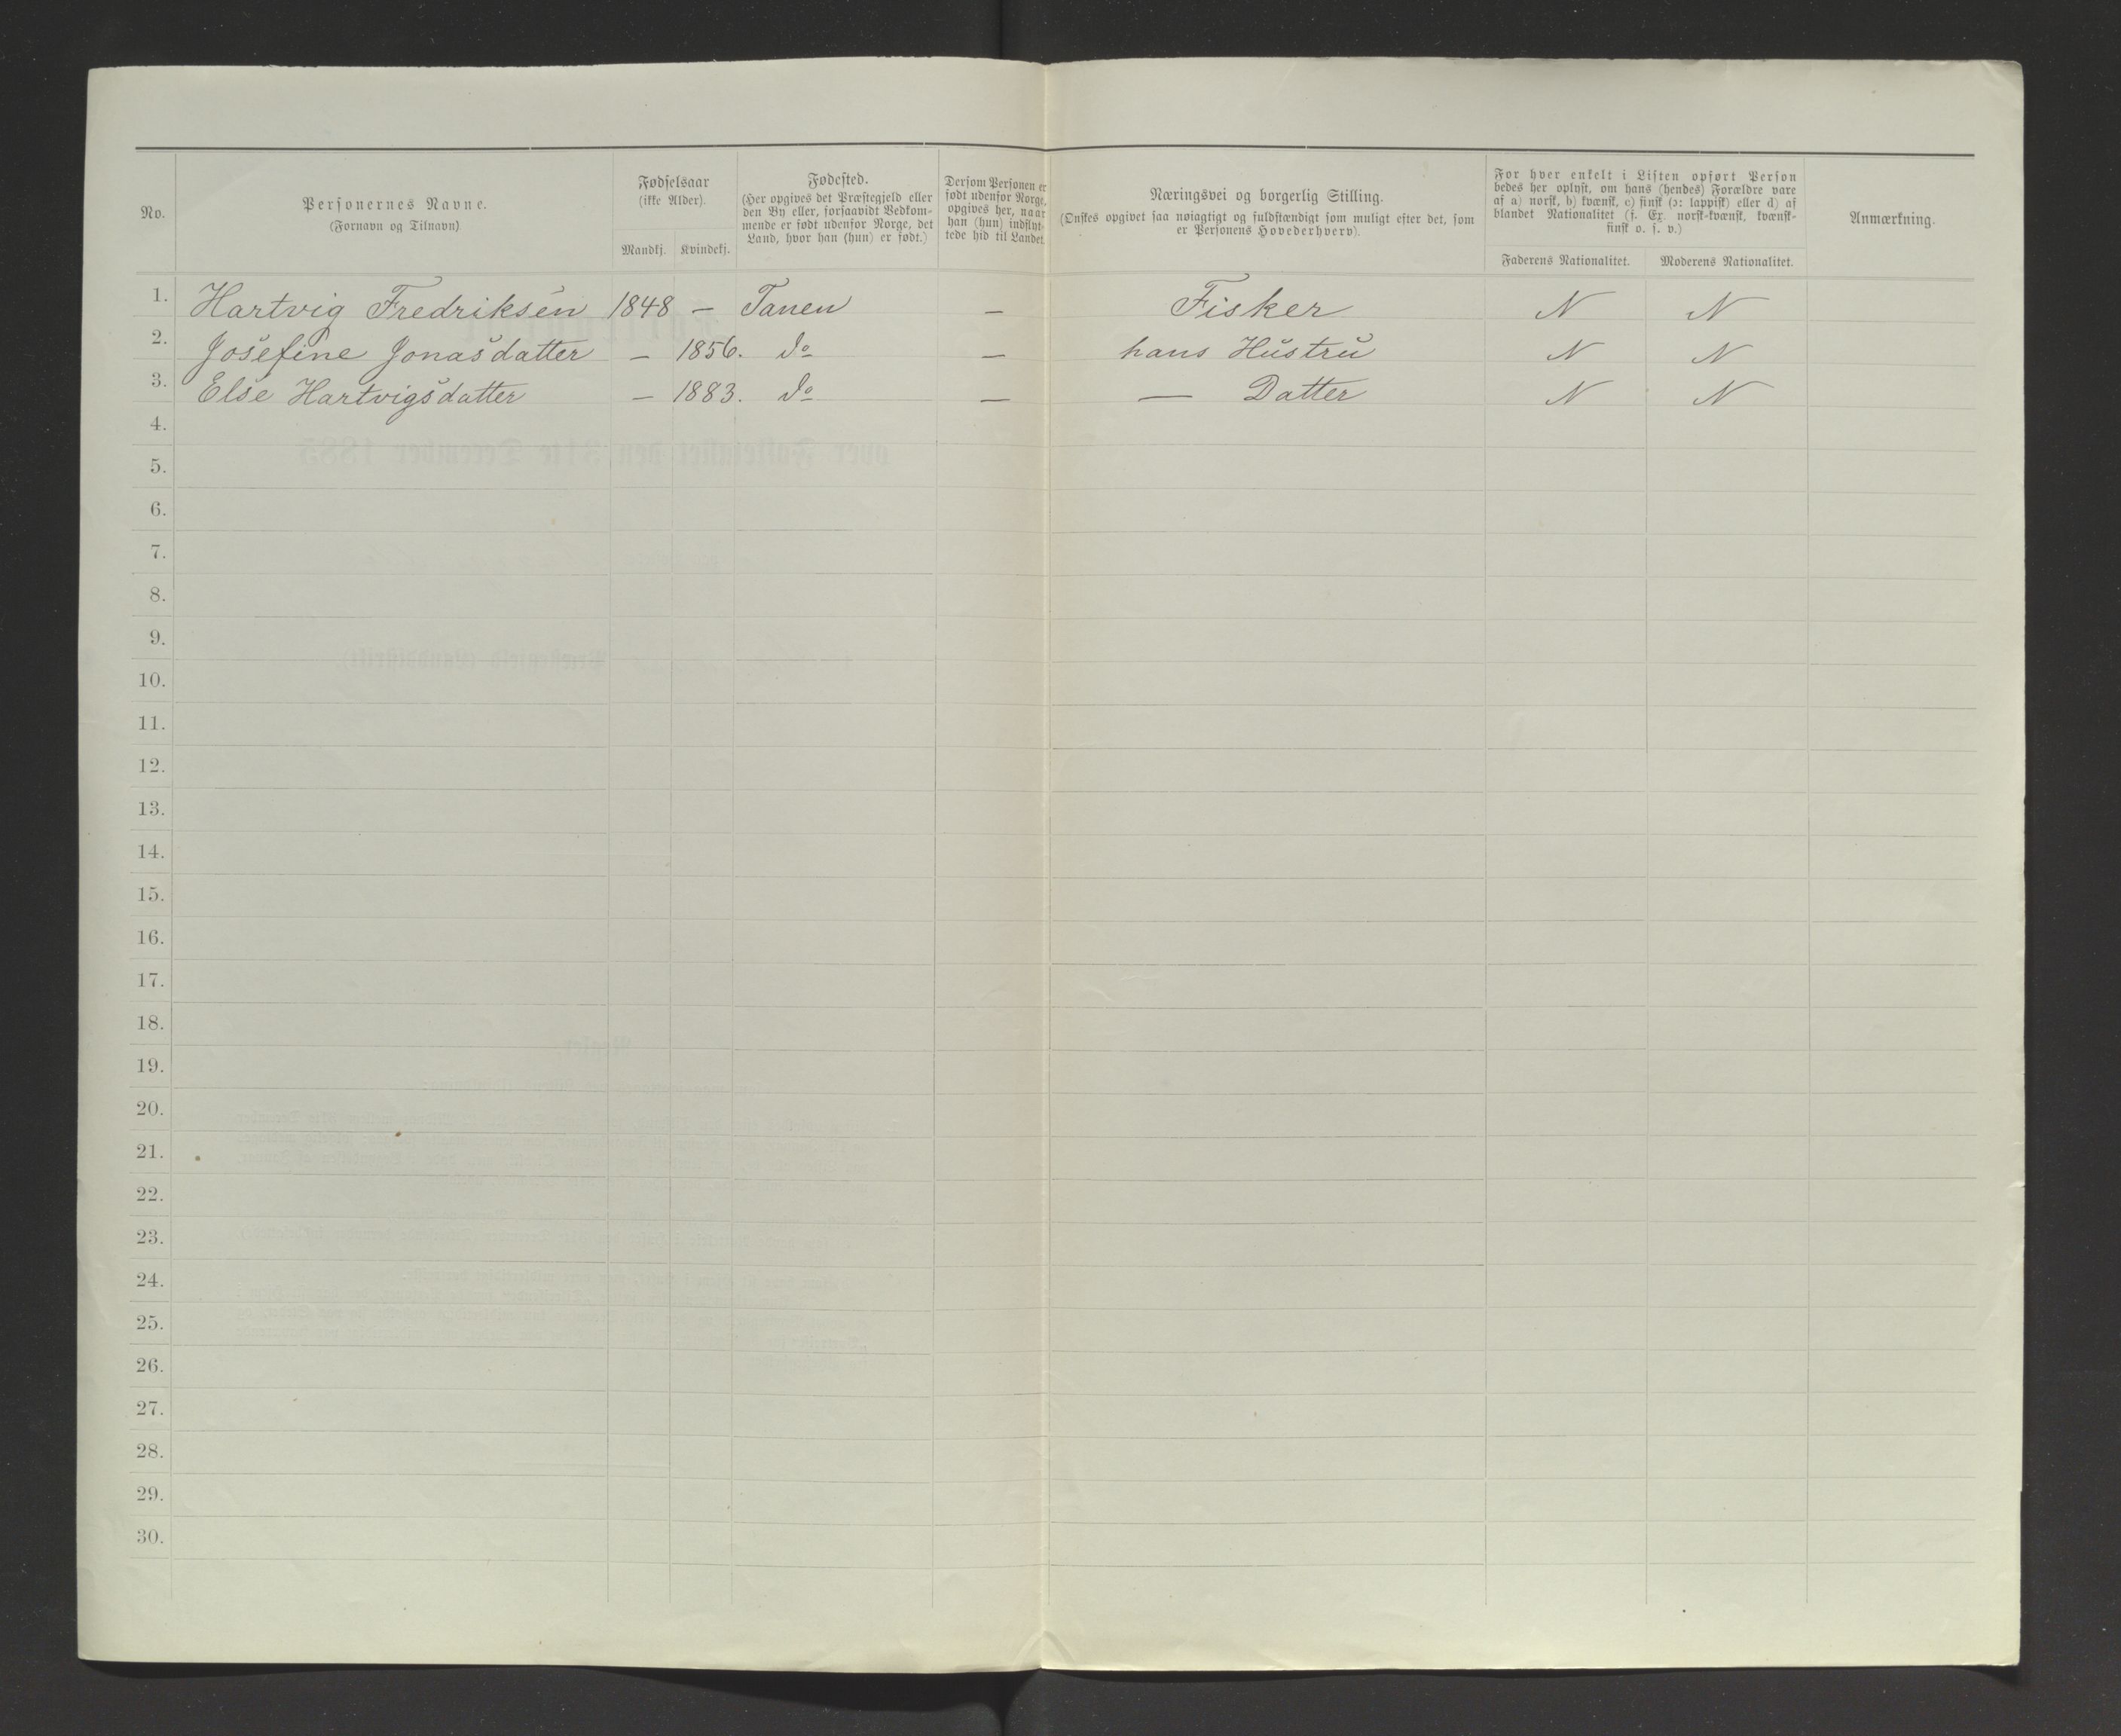 No.
Personernes Navne.
(Fornavn og Tilnavn)
Fødselsaar
(ikke Alder).
Mandkj. Kvindekj.
Fødested.
(Her opgives det Præstegjeld eller
den By eller, forsaavidt Vedkom-
mende er født udenfor Norge, det
Land, hvor han (hun) er født.)
Dersom Personen er
født udenfor Norge,
opgives her, naar
han (hun) indflyt-
tede hid til Landet.
Næringsvei og borgerlig Stilling.
(Ønskes opgivet saa nøiagtigt og fuldstændigt som muligt efter det, som
er Personens Hovederhverv).
For hver enkelt i Listen opført Person
bedes her oplyst, om hans (hendes) Forældre vare
af a) norsk, b) kvænsk, c) finsk (ɔ: lappisk) eller d) af
blandet Nationalitet (f. Ex. norsk-kvænsk, kvænsk-
finsk o. s. v.)
Faderens Nationalitet. Moderens Nationalitet.
Anmærkning.
1. Hartvig Fredriksen 1848 — Tanen — Fisker N N
2. Josefine Jonasdatter — 1856. do — hans Hustru N N
3. Else Hartvigsdatter — 1883. do — — Datter N N
4.
5.
6.
7.
8.
9.
10.
11.
12.
13.
14.
15.
16.
17.
18.
19.
20.
21.
22.
23.
24.
25.
26.
27.
28.
29.
30.